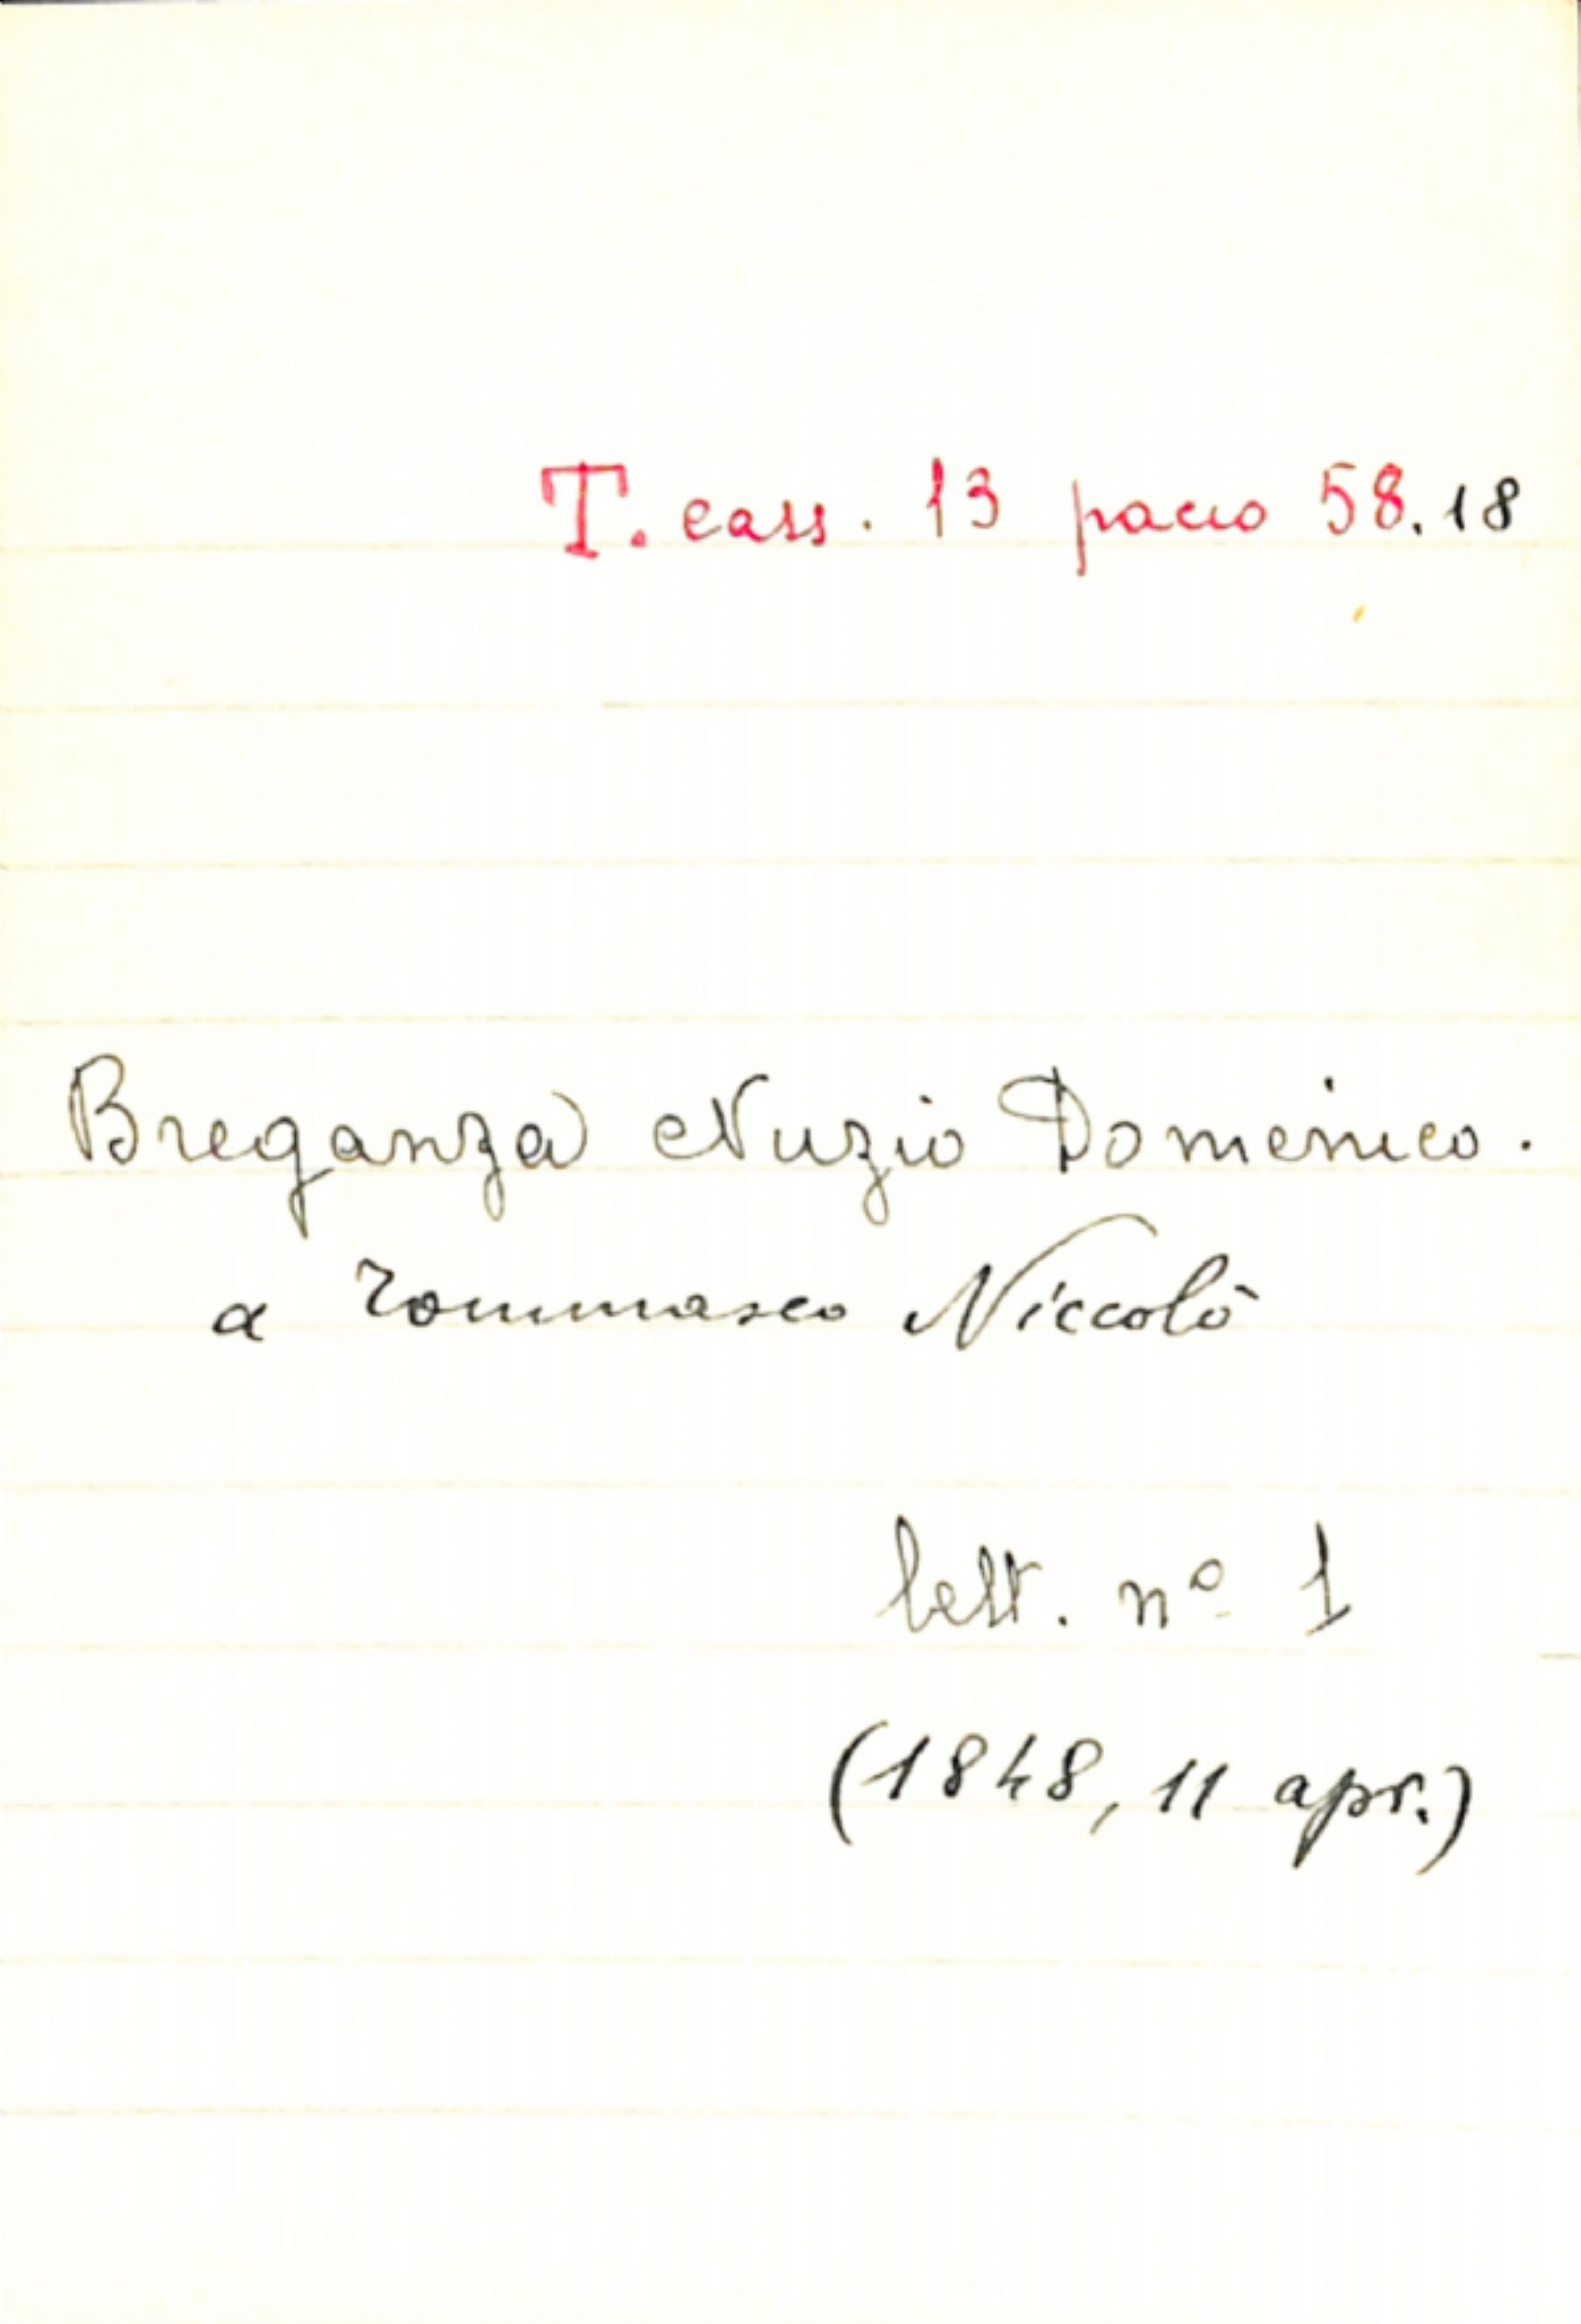 T. cass. 13 pacco 58.18
Breganza Nuzio Domenico.
a Tommaseo Niccolò
lett. nº 1
(1848, 11 apr.)